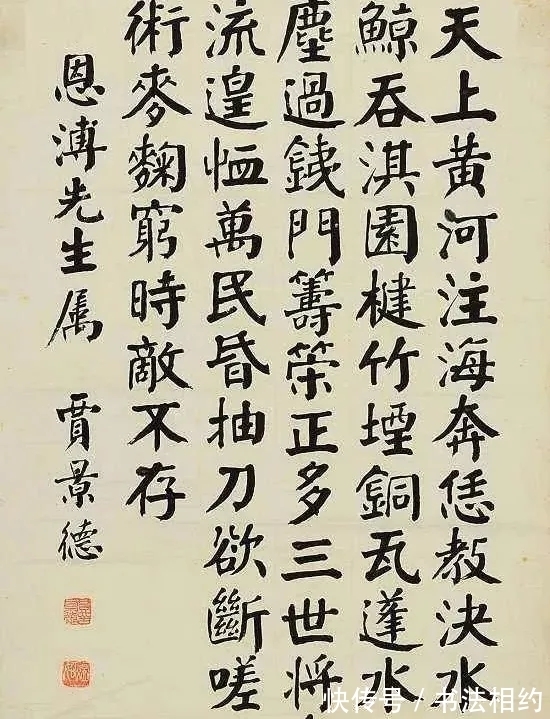 天上黄河注海奔恁教決水
鯨吞淇園楗竹堙銅瓦蓬水
塵過銕門籌策正多三世將
流遑恤萬民昏抽刀欲斷嗟
術麥麴窮時敵不存
恩溥先生属 賈景德
快传号 / 书法相约